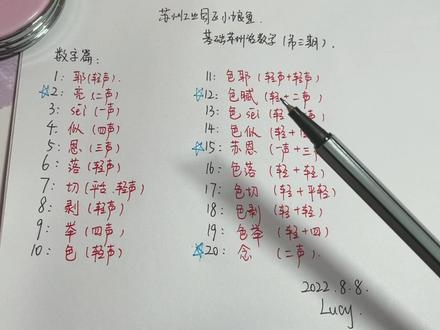 基础苏州话数字(第三期).
数字篇:
1: 耶(轻声).
☆2: 亮(二声)
3: sei(一声)
4: 似(四声)
5: 恩(三声)
6: 落(轻声)
7: 切(平舌.轻声)
8: 剥(轻声)
9: 举(四声)
10: 色(轻声)
11: 色耶(轻声+轻声)
☆12: 色腻(轻+二声)
13: 色sei(轻
14: 色似(轻+
☆15: 苏恩(一声+三
16: 色落(轻+轻)
17: 色切(轻+平轻)
18: 色剥(轻+轻)
19: 色举(轻+四)
☆20: 念(二声).
2022.8.8.
Lucy.